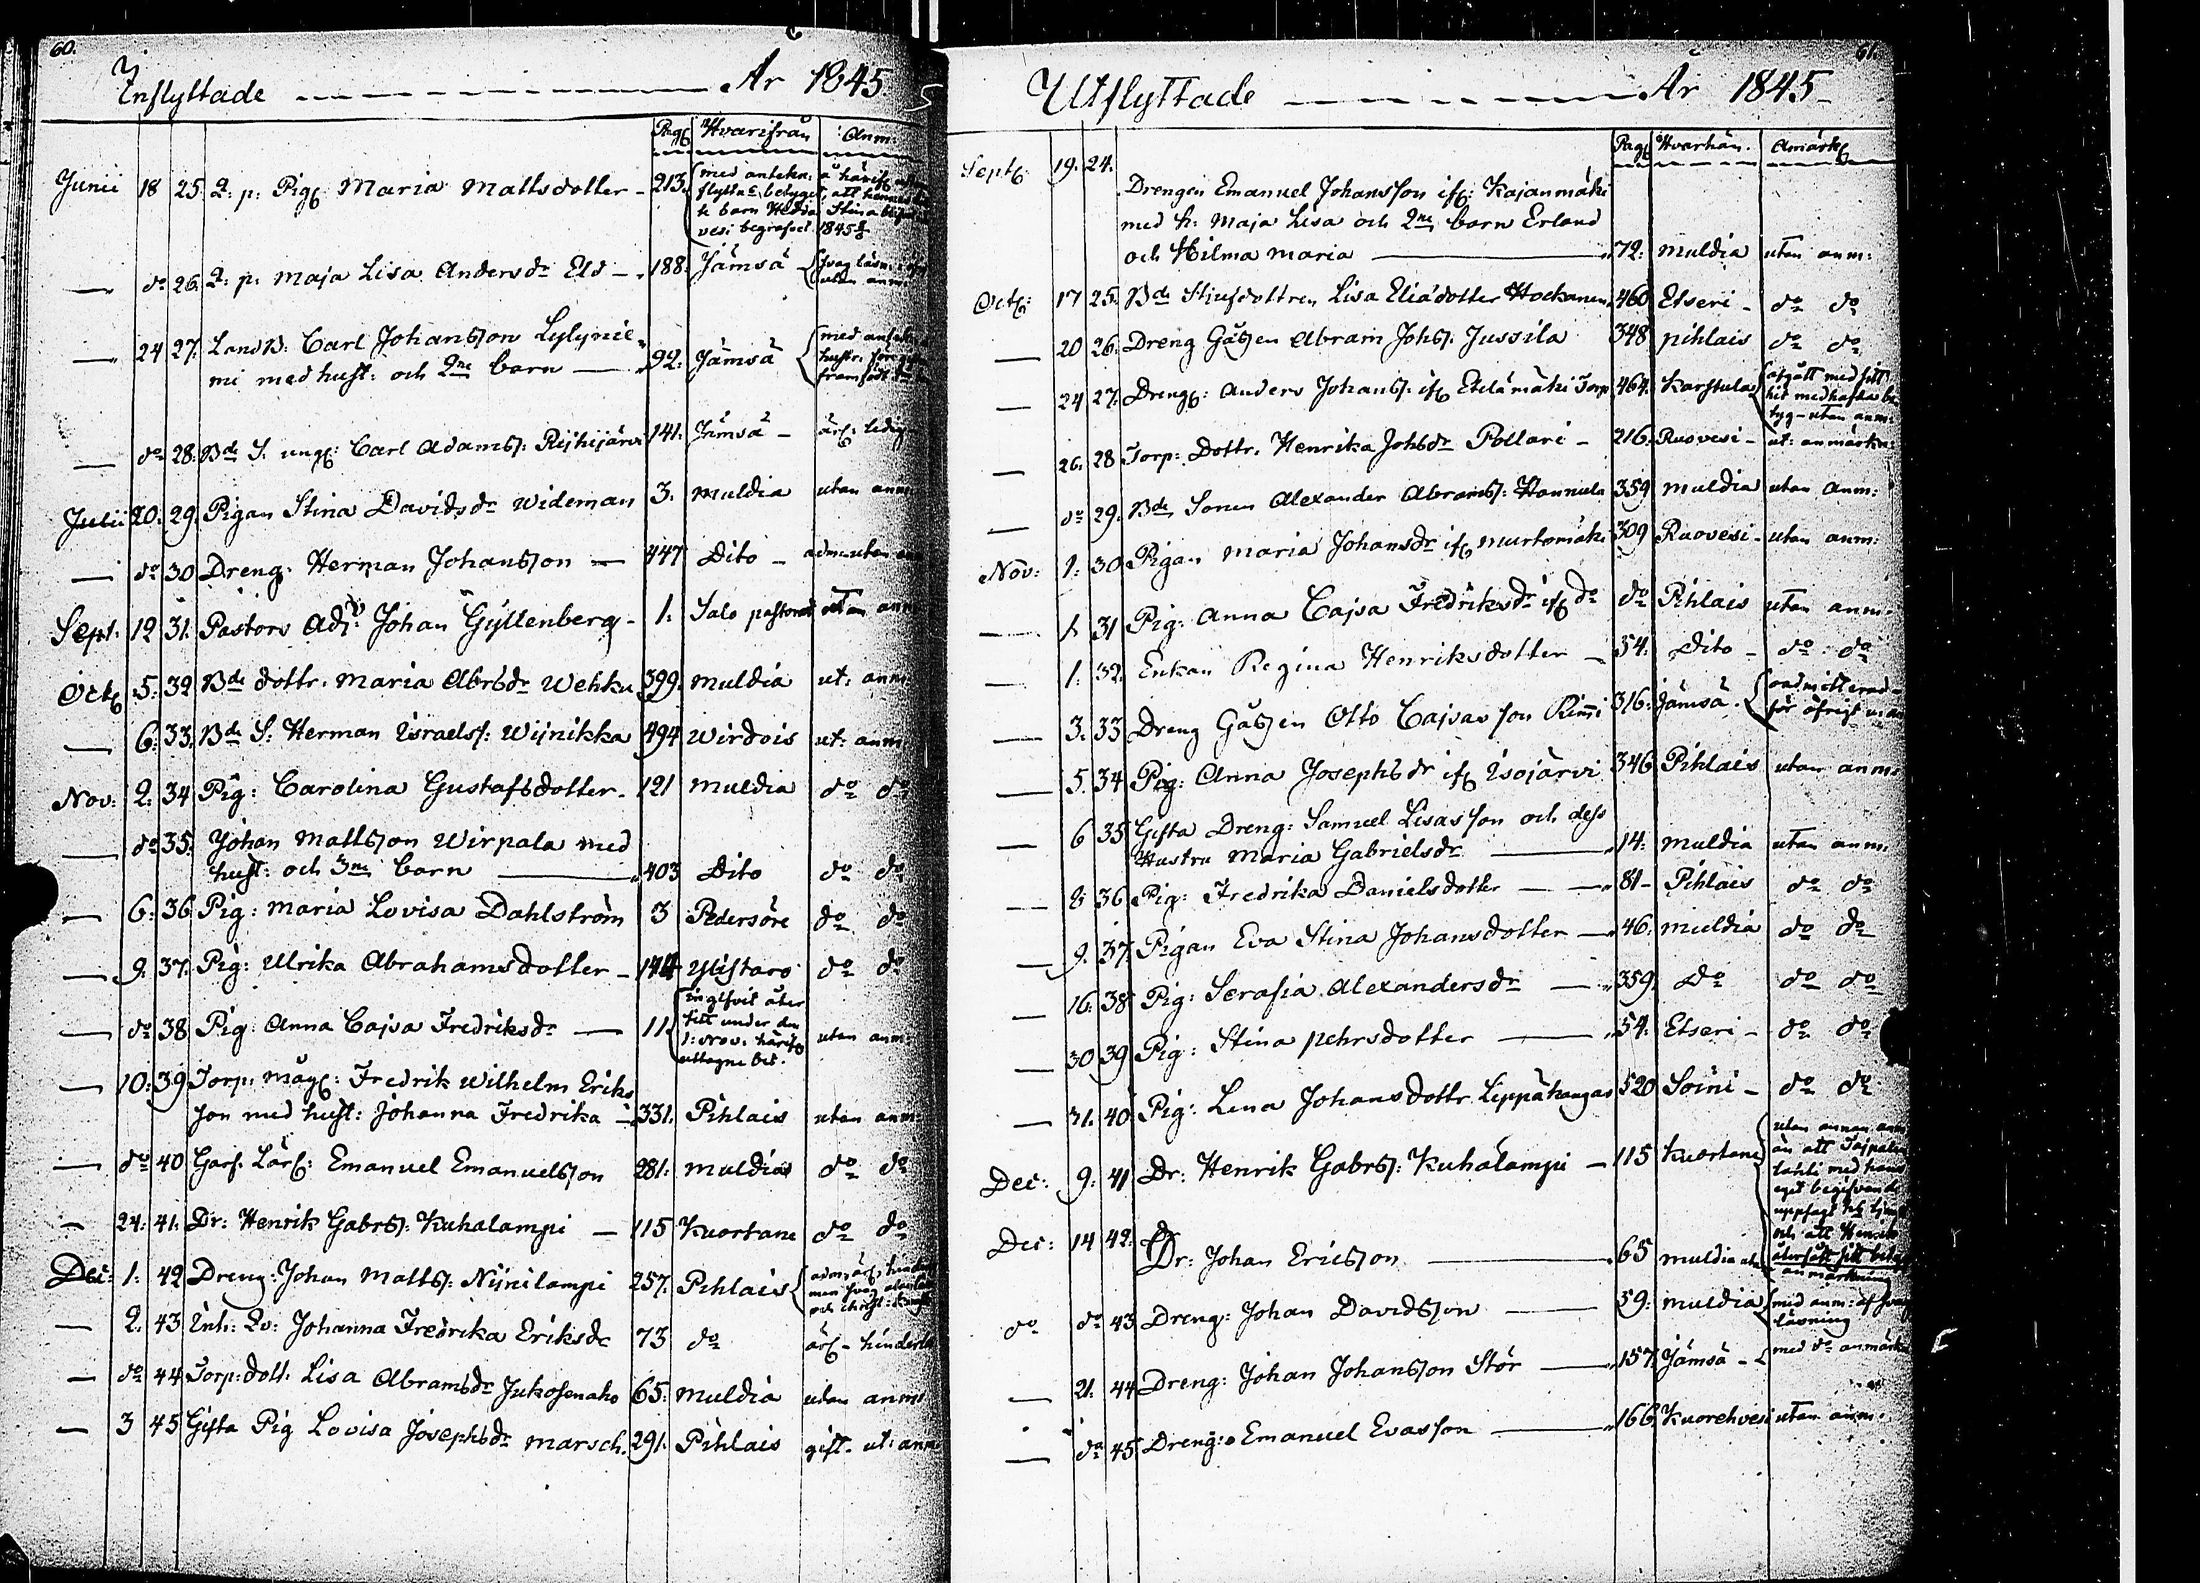 60.
Inflyttade År 1845.
Pag. Hvarifrån Anm:
Junii 18 25. Q: p: Pig. Maria Mattsdotter 213. med
Stina
vesi begrafvet 1845
do 26. Q: p: Maja Lisa Andersdr Eld 188. Jämsä
utan anm
24 27. LandB: Carl Johansson Lylynie-
mi med hust: och 2ne barn 92. Jämsä
do 28. Bde S. ung: Carl Adamss: Reihijärvi 141. Jämsä ledig
Julii 20. 29. Pigan Stina Davidsdr Wideman 3. Muldia utan anm:
do 30 Dreng. Herman Johansson 447 Dito utan anm
Sept. 12 31. Pastors Adj: Johan Gyllenberg 1. Salo pastorat utan anm
Oct. 5. 32 Bde dottr. Maria Abrsdr Wehku 399. Muldia ut: anm:
6. 33. Bde S. Herman Israelss: Wijnikka 494 Wirdois ut: anm
Nov: 2. 34 Pig: Carolina Gustafsdotter 121 Muldia do do
do 35. Johan Mattsson Wirpala med
hust: och 3ne barn 403 Dito do do
6: 36 Pig: Maria Lovisa Dahlström 3 Pedersöre do do
9. 37. Pig: Ulrika Abrahamsdotter 144 Ylistaro do do
do 38 Pig. Anna Cajsa Fredriksdr 11. åter
under den
1: Nov: härif.
uttagne bet. utan anm:
10: 39 Torp: måg: Fredrik Wilhelm Eriks
son med hust: Johanna Fredrika 331. Pihlais utan anm:
do 40 Garf. Lärl: Emanuel Emanuelsson 281. Muldia do do
24: 41. Dr: Henrik Gabrss: Kuhalampi 115 Kuortane do do
Dec: 1: 42 Dreng: Johan Mattss: Nijnilampi 257. Pihlais
2. 43 Inh: Qv: Johanna Fredrika Eriksdr 73 do hinderl
do 44 Torp: dott. Lisa Abramsdr Jukosenaho 65: Muldia utan anm:
3 45 Gifta Pig Lovisa Josephsdr Marsch. 291. Pihlais gift. ut: anm
61.
Utflyttade År 1845
Pag. Hvarhän. Anmärk.
Sept. 19. 24.
Drengen Emanuel Johansson if: Kajanmäki
med h: Maja Lisa och 2ne barn Erland
och Hilma Maria 72. Muldia utan anm:
Oct: 17 25. Bde Stjufdottren Lisa Eliædotter Hockanen 460 Etseri do do
20 26. Dreng Gåssen Abram Johss. Jussila 348 Pihlais do do
24 27. Dreng: Anders Johanss. if. Etelämäki Torp 464. Karstula afgått med sitt
hit medhafda be
tyg utan anm:
26. 28 Torp: Dottr. Henrika Johsdr Pollari 216. Ruovesi ut: anmärkn:
do 29. Bde Sonen Alexander Abramss: Hannula 359 Muldia utan anm:
Nov: 1. 30 Pigan Maria Johansdr if. Murtomäki 309 Ruovesi utan anm:
1. 31 Pig: Anna Cajsa Fredriksdr if. do do Pihlais utan anm:
1. 32. Enkan Regina Henriksdotter 54. Dito do do
3. 33 Dreng Gåssen Otto Cajsasson Rimi 316. Jämsä. oadmitterad
för öfrigt
5. 34 Pig: Anna Josephsdr if. Isojärvi 346 Pihlais utan anm:
6 35 Gifta Dreng: Samuel Lisasson och dess
Hustru Maria Gabrielsdr 14. Muldia utan anm.
8 36 Pig: Fredrika Danielsdotter 81 Pihlais do do
9. 37. Pigan Eva Stina Johansdotter 46. Muldia do do
16. 38 Pig: Serafia Alexandersdr 359. do do do
30 39 Pig: Stina Pehrsdotter 54. Etseri do do
31. 40 Pig: Lena Johansdottr Lippäkangas 520 Soini do do
Dec: 9. 41 Dr: Henrik Gabrss: Kuhalampi 115 Kuortane utan annan anm
än att
med
eget begifvande
uppsagt
och att Henrik
återsatt sitt
Dec: 14 42. Dr: Johan Ericsson 65 Muldia utan
anmärkning
do do 43 Dreng: Johan Davidsson 59. Muldia med anm: af svag
läsning
21. 44 Dreng: Johan Johansson Stör 157 Jämsä med do anmärk
do 45 Dreng: Emanuel Evasson 166 Kuorehvesi utan anm.